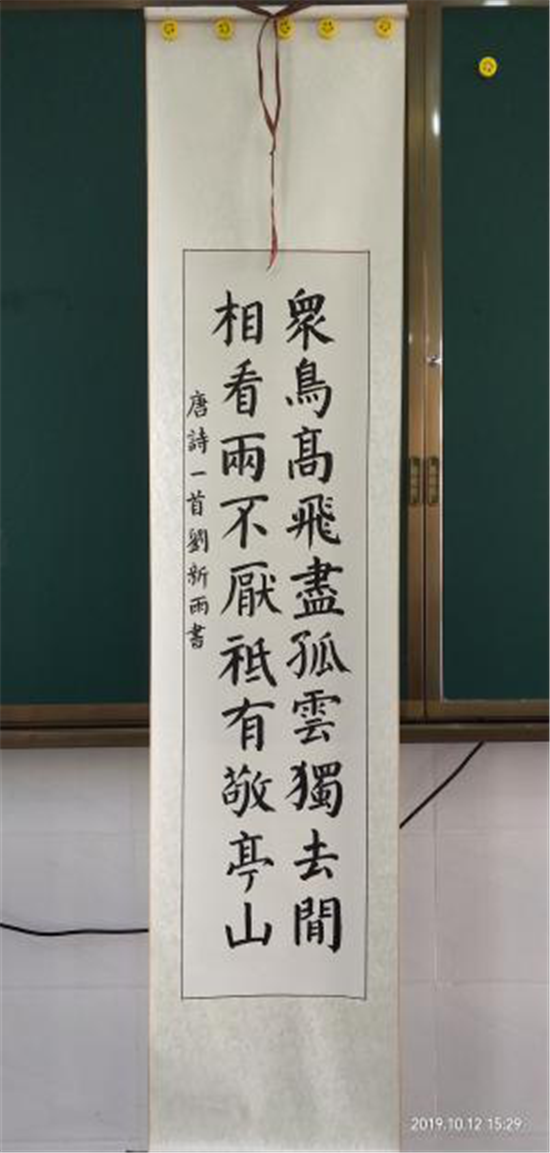 眾鳥髙飛盡孤雲獨去閒
相看兩不厭祗有敬亭山
唐詩一首劉新雨書
2019.10.12 15:29